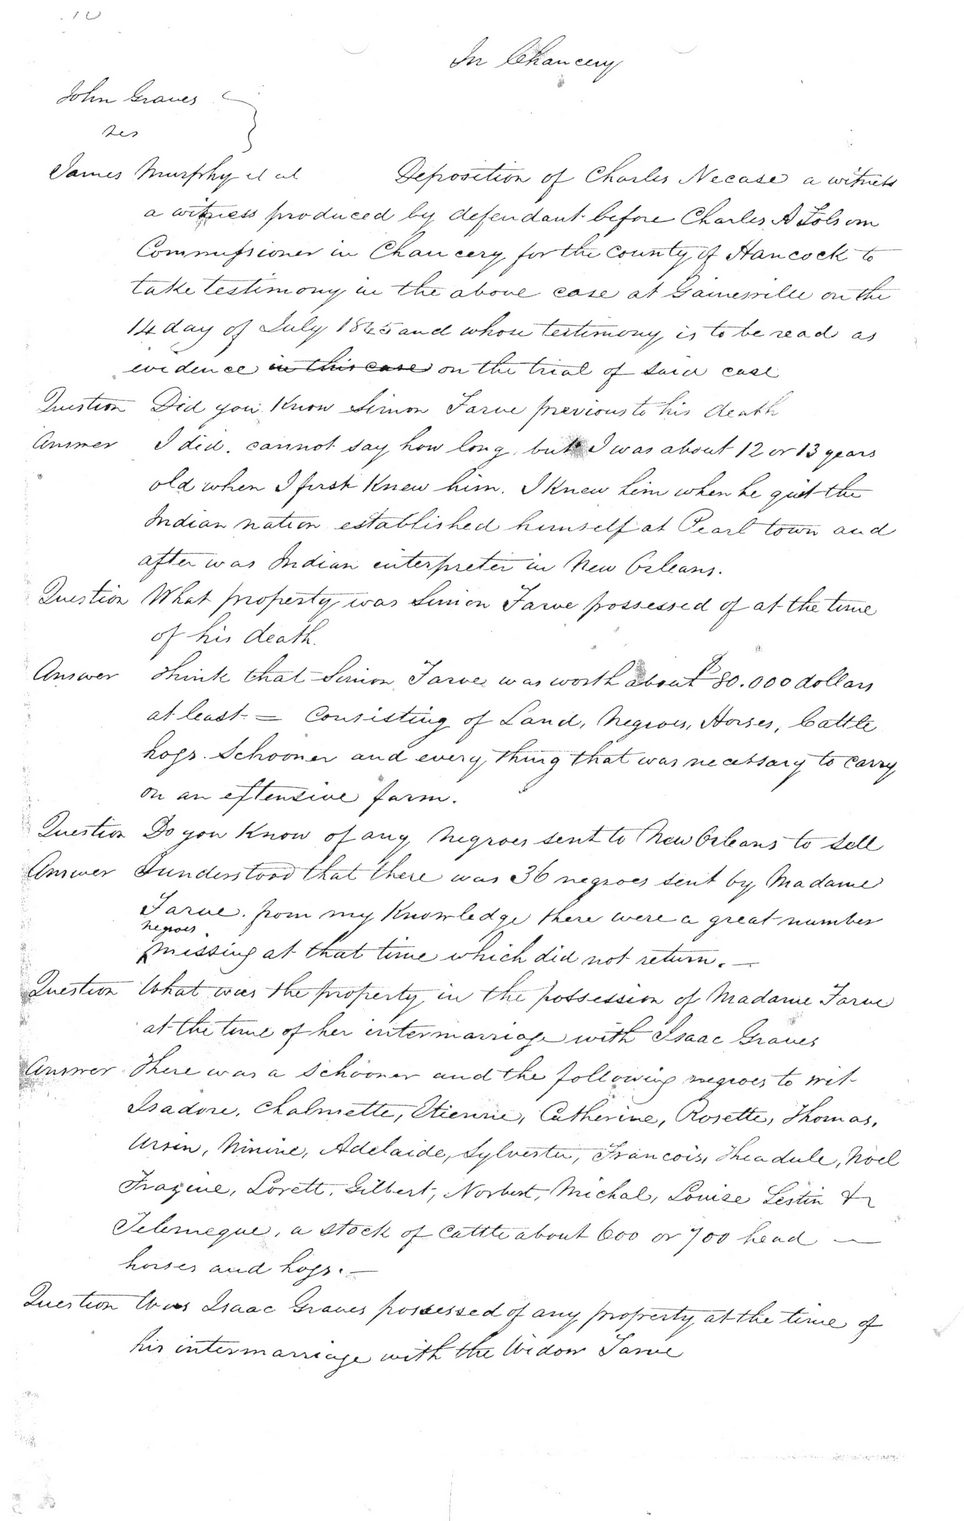 In Chancery
John Graves
vs
James Murphy et al Deposition of Charles Necase a witness
a witness produced by defendant before Charles A Folsom
Commissioner in Chancery for the county of Hancock to
take testimony in the above case at Gainesville on the
14 day of July 1845 and whose testimony is to be read as
evidence in this case on the trial of said case
Question Did you Know Simon Farve previous to his death
Answer I did. cannot say how long but I was about 12 or 13 years
old when I first Knew him. I Knew him when he quit the
Indian nation established himself at Pearl town and
after was Indian interpreter in New Orleans.
Question What property was Simon Farve possessed of at the time
of his death.
Answer Think that Simon Farve was worth about $80.000 dollars
at least = Consisting of Land, Negroes, Horses, Cattle
hogs. Schooner and every thing that was necessary to carry
on an extensive farm.
Question Do you Know of any Negroes sent to New Orleans to sell
Answer I understood that there was 36 negroes sent by Madame
Farve. from my Knowledge there were a great number
negroes
missing at that time which did not return. —
Question What was the property in the possession of Madame Farve
at the time of her intermarriage with Isaac Graves
Answer There was a Schooner and the following negroes to wit
Isadore, Chalmette, Etienne, Catherine, Rosette, Thomas,
Ursin, Ninine, Adelaide, Sylvester, Francois, Theadule, Noel
Frazine, Lorett, Gilbert, Norbert, Michal, Louise Lestin &
Telemeque, a stock of cattle about 600 or 700 head —
horses and hogs. —
Question Was Isaac Graves possessed of any property at the time of
his intermarriage with the Widow Farve